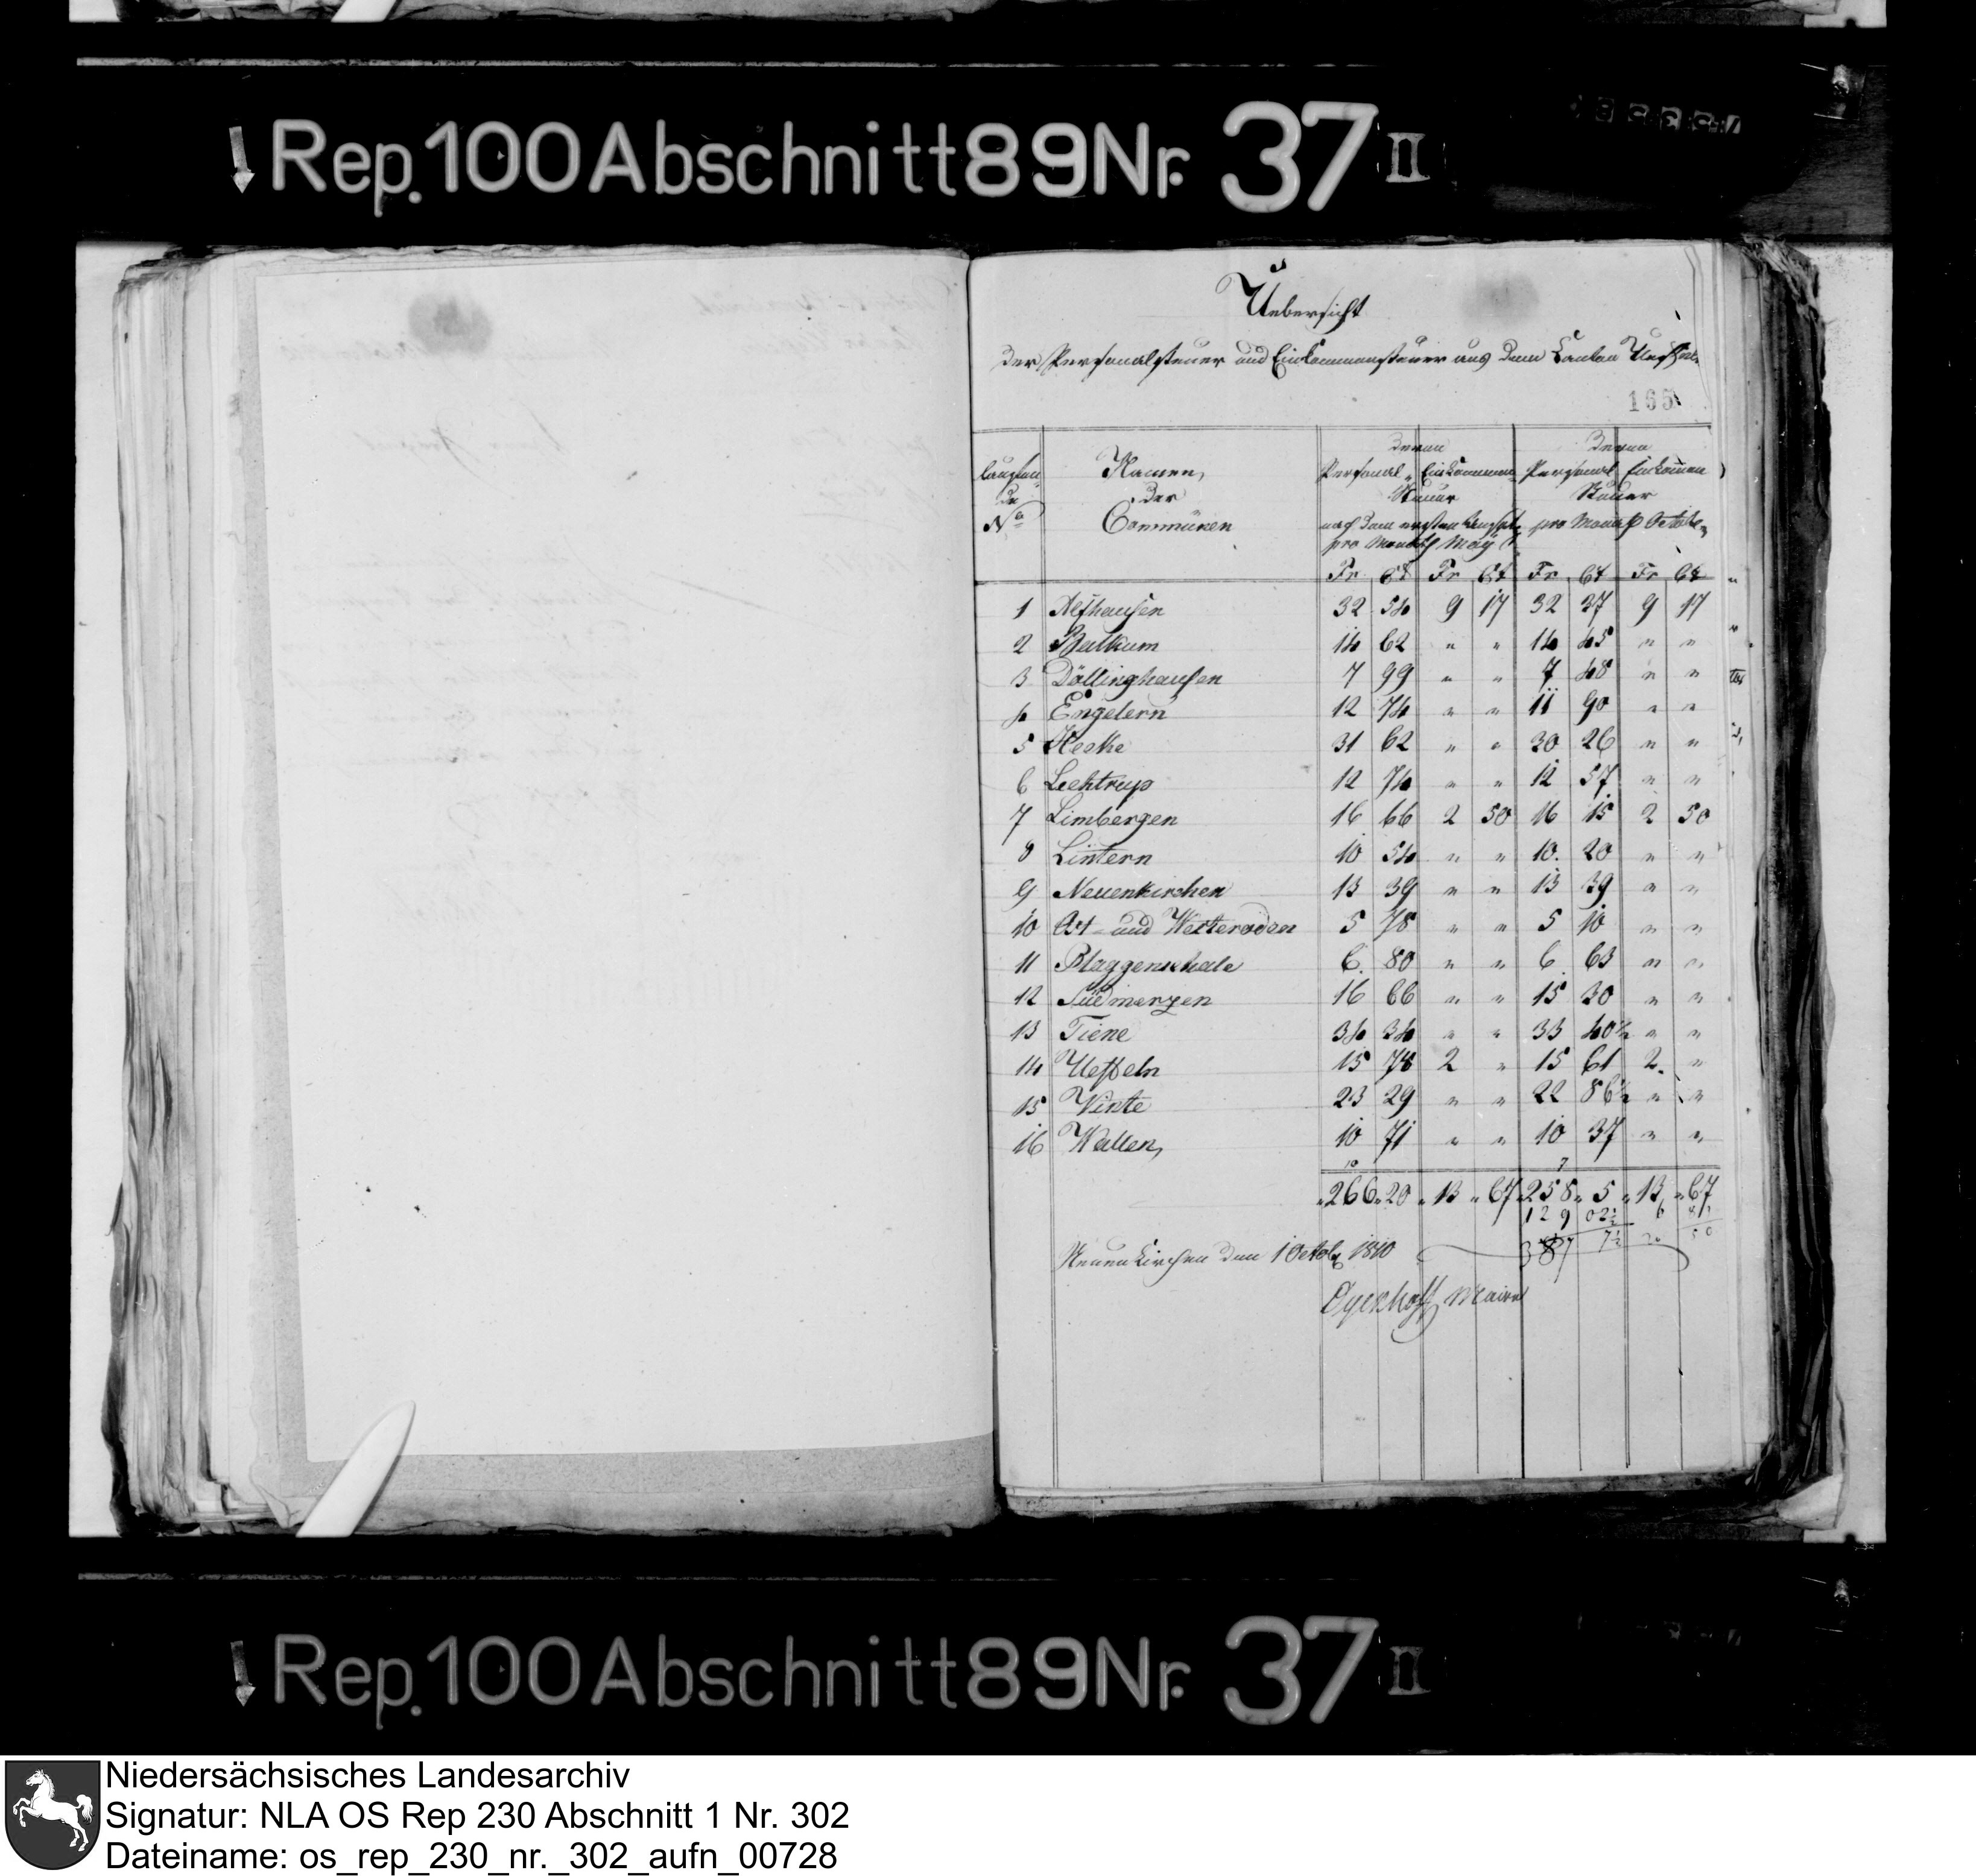 Rep. 100 Abschnitt 89 Nr. 37 II
Uebersicht
der Personalsteuer und Einkommensteuer aus dem Canton
165
laufen-
de
No
Namen,
der
Communen
Deren
Personal- Einkommen-
Steuer
nach dem ersten
pro Monath May
Deren
Personal Einkommen
Steuer
pro Monath October
Fr. Ct Fr Ct Fr Ct Fr Ct
1 Alfhausen 32 54 9 17 32 37 9 17
2 Balkum 14 62 " " 14 45 " "
3 Döllinghausen 7 99 " " 7 48 " "
4 Engelern 12 74 " " 11 90 " "
5 Heeke 31 62 " " 30 26 " "
6 Lechtrup 12 74 " " 12 57 " "
7 Limbergen 16 66 2 50 16 15 2 50
8 Lintern 10 54 " " 10. 20 " "
9 Neuenkirchen 13 39 " " 13 39 " "
10 Ost- und Westeroden 5 78 " " 5 10 " "
11 Plaggenschale 6. 80 " " 6 63 " "
12 Südmerzen 16 66 " " 15 30 " "
13 Tiene 34 34 " " 33 40½ " "
14 Ueffeln 15 78 2 " 15 61 2. "
15 Vinte 23 29 " " 22 86½ " "
16 Wallen, 10 71 " " 10 37 " "
10 7
266 20 13 67 258 5 13 67
129 02½ 6
387 7½ 20 50
Neuenkirchen den 1 Octob 1810
Maire
Rep. 100 Abschnitt 89 Nr. 37 II
Niedersächsisches Landesarchiv
Signatur: NLA OS Rep 230 Abschnitt 1 Nr. 302
Dateiname: os_rep_230_nr._302_aufn_00728